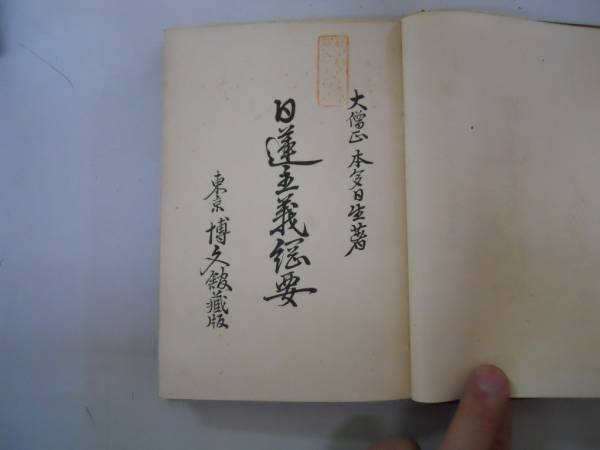 大僧正本多日生著
日蓮主義綱要
東京博文館蔵版